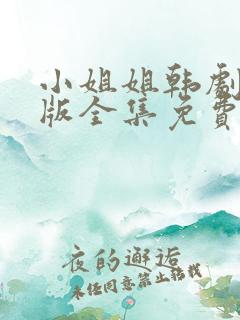 小姐姐韩劇
版全集免費
夜的邂逅
未经同意禁止转载